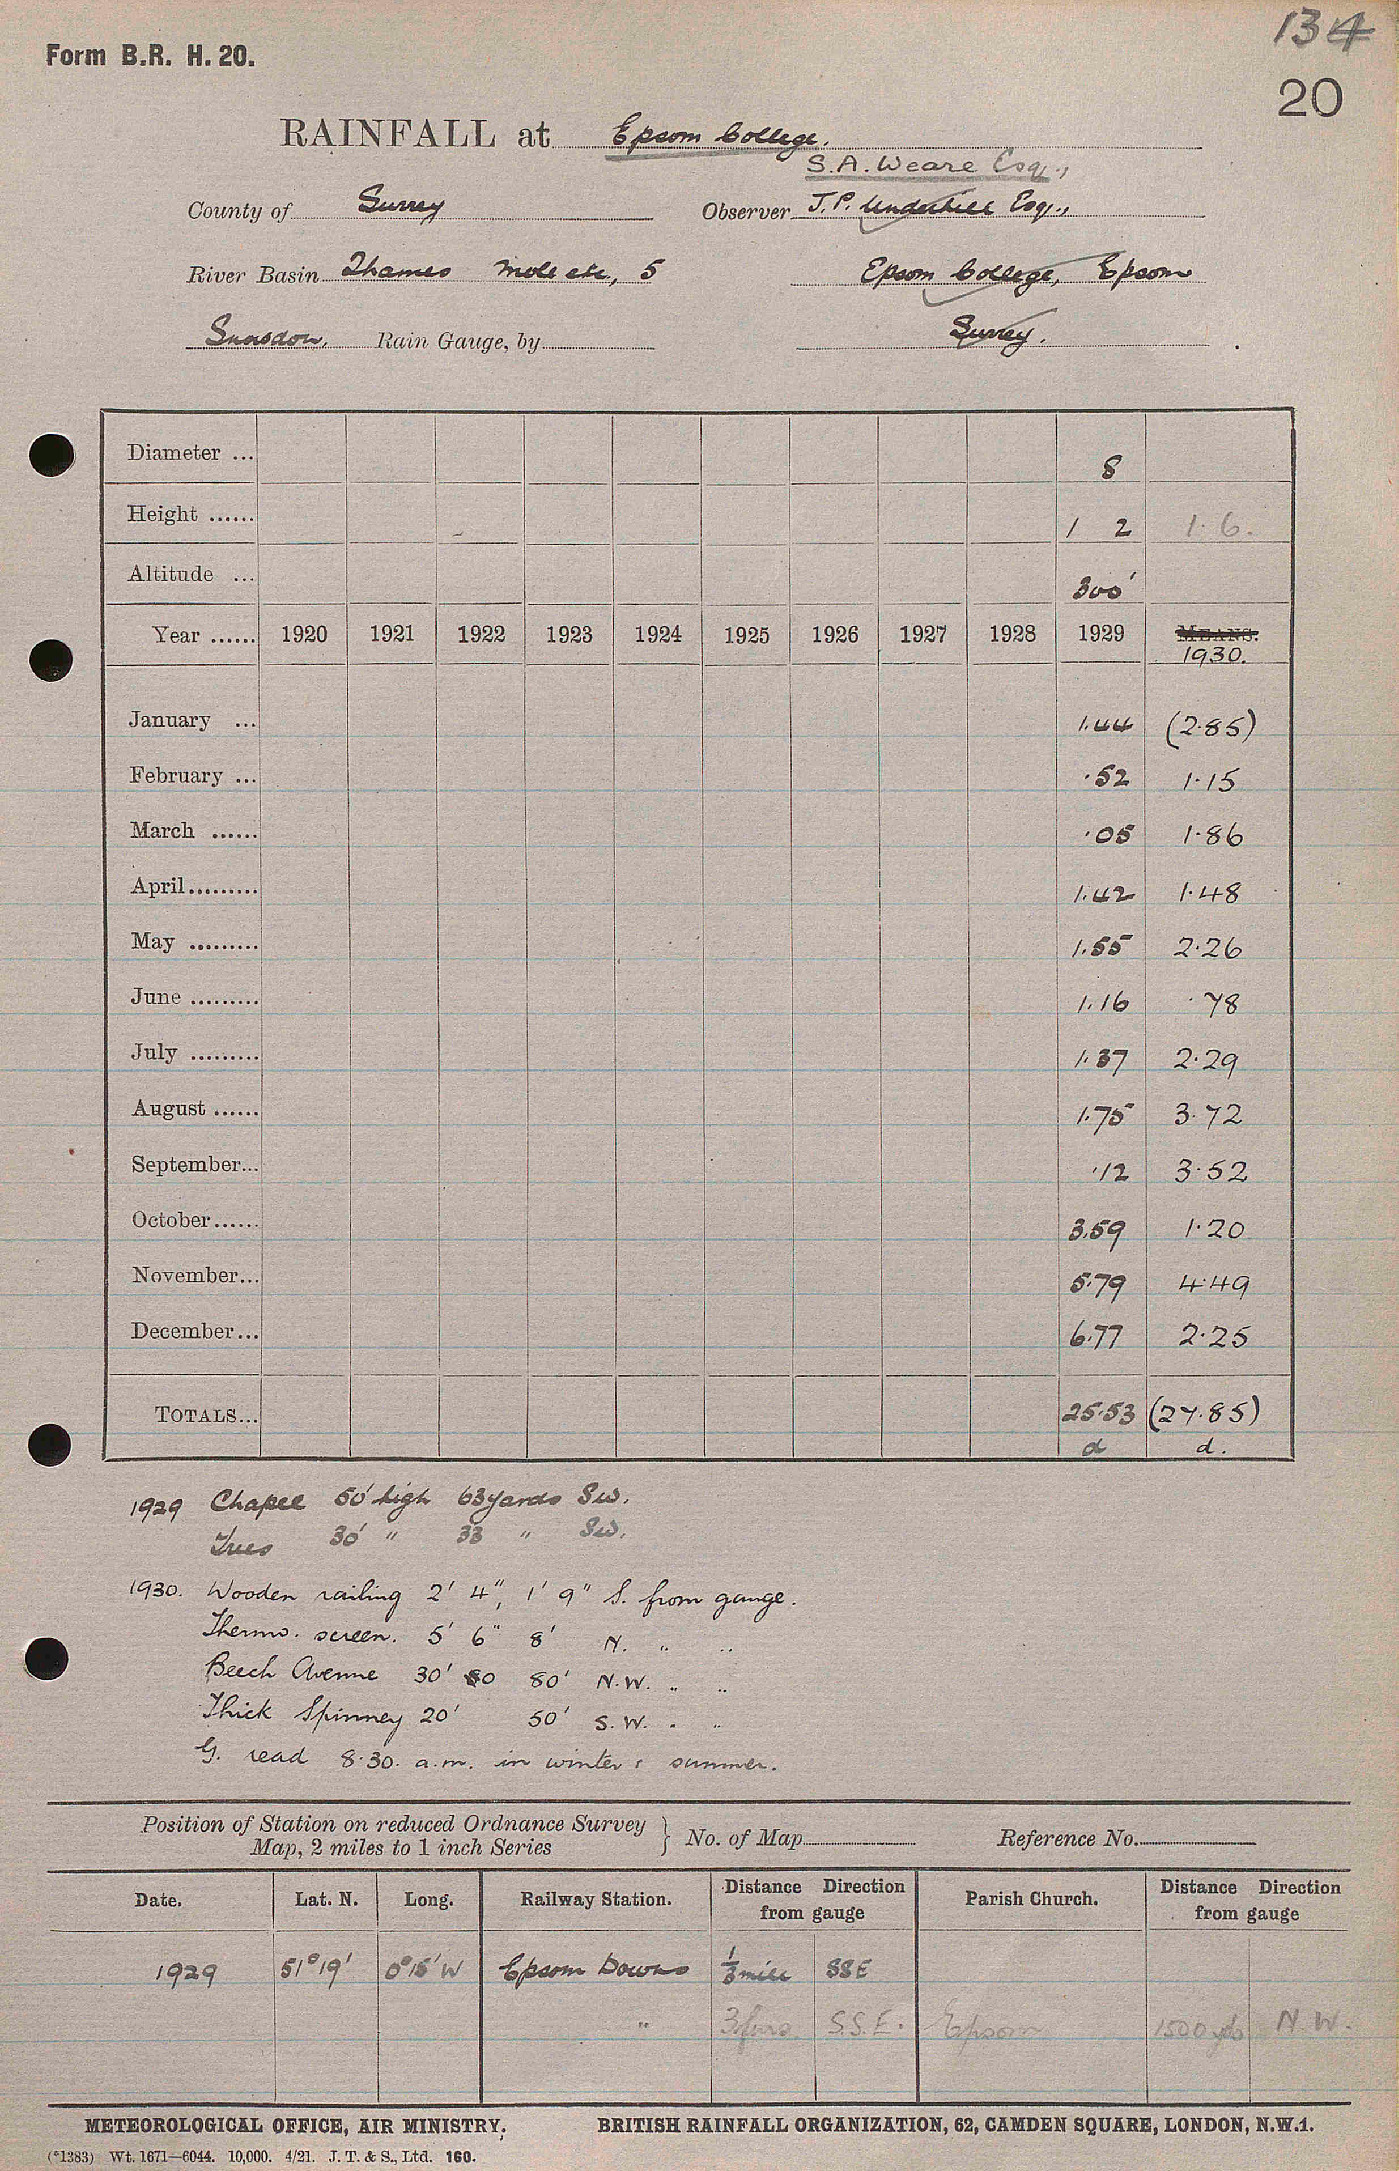 134
Form B.R. H. 20.
20
RAINFALL at Epsom College.
S.A. Weare Esq.,
County of Surrey Observer J.P. Underhill Esq.,
River Basin Thames Mole etc., 5 Epsom College, Epsom
Snowdon, Rain Gauge, by Surrey.
Diameter ... 8
Height ...... 1 2 1. 6.
Altitude ... 300'
Year ...... 1920 1921 1922 1923 1924 1925 1926 1927 1928 1929 MEANS.
1930.
January ... 1.44 (2.85)
February ... .52 1.15
March ...... .05 1.86
April......... 1.42 1.48
May ......... 1.55 2.26
June ......... 1.16 .78
July ......... 1.37 2.29
August ...... 1.75 3.72
September... .12 3.52
October...... 3.59 1.20
November... 5.79 4.49
December... 6.77 2.25
TOTALS... 25.53 (27.85)
d d.
1929 Chapel 50' high 63 yards SW.
Trees 30' " 33 " SW.
1930. Wooden railing 2' 4", 1' 9" S. from gauge.
Thermo. screen. 5' 6" 8' N. " "
Beech Avenue 30' 80 80' N.W. " "
Thick Spinney 20' 50' S.W. " "
G. read 8.30. a.m. in winter & summer.
Position of Station on reduced Ordnance Survey
Map, 2 miles to 1 inch Series } No. of Map Reference No.
Date. Lat. N. Long. Railway Station. Distance Direction from gauge Parish Church. Distance Direction from gauge
1929 51°19' 0°15' W Epsom Downs 1/3 mile SSE
" 3 furs. S.S.E. Epsom 1500 yds N.W.
METEOROLOGICAL OFFICE, AIR MINISTRY. BRITISH RAINFALL ORGANIZATION, 62, CAMDEN SQUARE, LONDON, N.W.1.
(*1383) Wt. 1671—6044. 10,000. 4/21. J. T. & S., Ltd. 160.